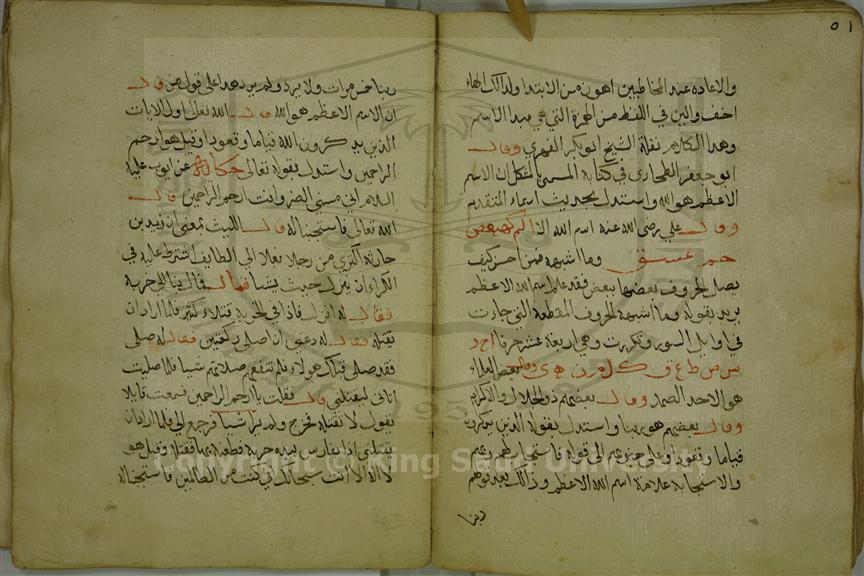 ٥١
والاعاده عند المخاطبين اهون من الابتدا ولذلك الهاء
اخف والين في اللفظ من الهمزة التي هي مبدا الاسم
وهذا الكلام نقله الشيخ ابو بكر الفهري وقال
ابو جعفر الطحاوى في كتابه المسمى بالمشكل ان الاسم
الاعظم هو الله واستدل بحديث اسماء المتقدم
وقال على رضى الله عنه اسم الله الاعظم كهيعص
حم عسق وما اشبهه فمن احسن كيف
يصل الحروف بعضها ببعض فقد علم اسم الله الاعظم
يريد بقوله وما اشبهه الحروف المقطعة التي جاءت
في اوايل السور وتكررت وهي اربعة عشر حرفا ا ح ر
س ص ط ع ق ك ل م ن ه ى وقال بعض العلماء
هو الاحد الصمد وقال بعضهم ذو الجلال والاكرام
وقال بعضهم هو ربنا واستدل بقوله الذين يذكرون
قياما وقعودا وعلى جنوبهم الى قوله فاستجاب لهم ربهم
والاستجابة علامة اسم الله الاعظم وذلك بعد قولهم
ربنا
ربنا خمس مرات ولا يرد ولم يرد هذا على قول من قال
ان الاسم الاعظم هو الله قال الله تعالى اول الايات
الذين يذكرون الله قياما وقعودا وقيل هو ارحم
الراحمين واستدل بقوله تعالى حكاية عن ايوب عليه
السلام اني مسني الضر وانت ارحم الراحمين قال
الله تعالى فاستجبنا له قال الليث بلغني ان زيد بن
حارثة اكترى من رجل بغلا الى الطايف اشترط عليه في
الكراء ان ينزله حيث يشا فمال به الى خربة
فقال له انزل فاذا في الخربة قتلاء كثير فلما اراد ان
يقتله قال له دعني ان اصلى ركعتين فقال له صلى
فقد صلى قبلك هولاء فلم تنفعهم صلاتهم شيا فلما صليت
اتاني ليقتلني قال فقلت يا ارحم الراحمين فسمعت قايلا
يقول لا تقتله فخرج ولم ير شيا فرجع الي فلما اراد ان
يقتلني اذا بفارس بيده حربة فطعنه بها فقتله وقيل هو
لا اله الا انت سبحانك اني كنت من الظالمين فاستجبنا له
Copyright © King Saud University
1957